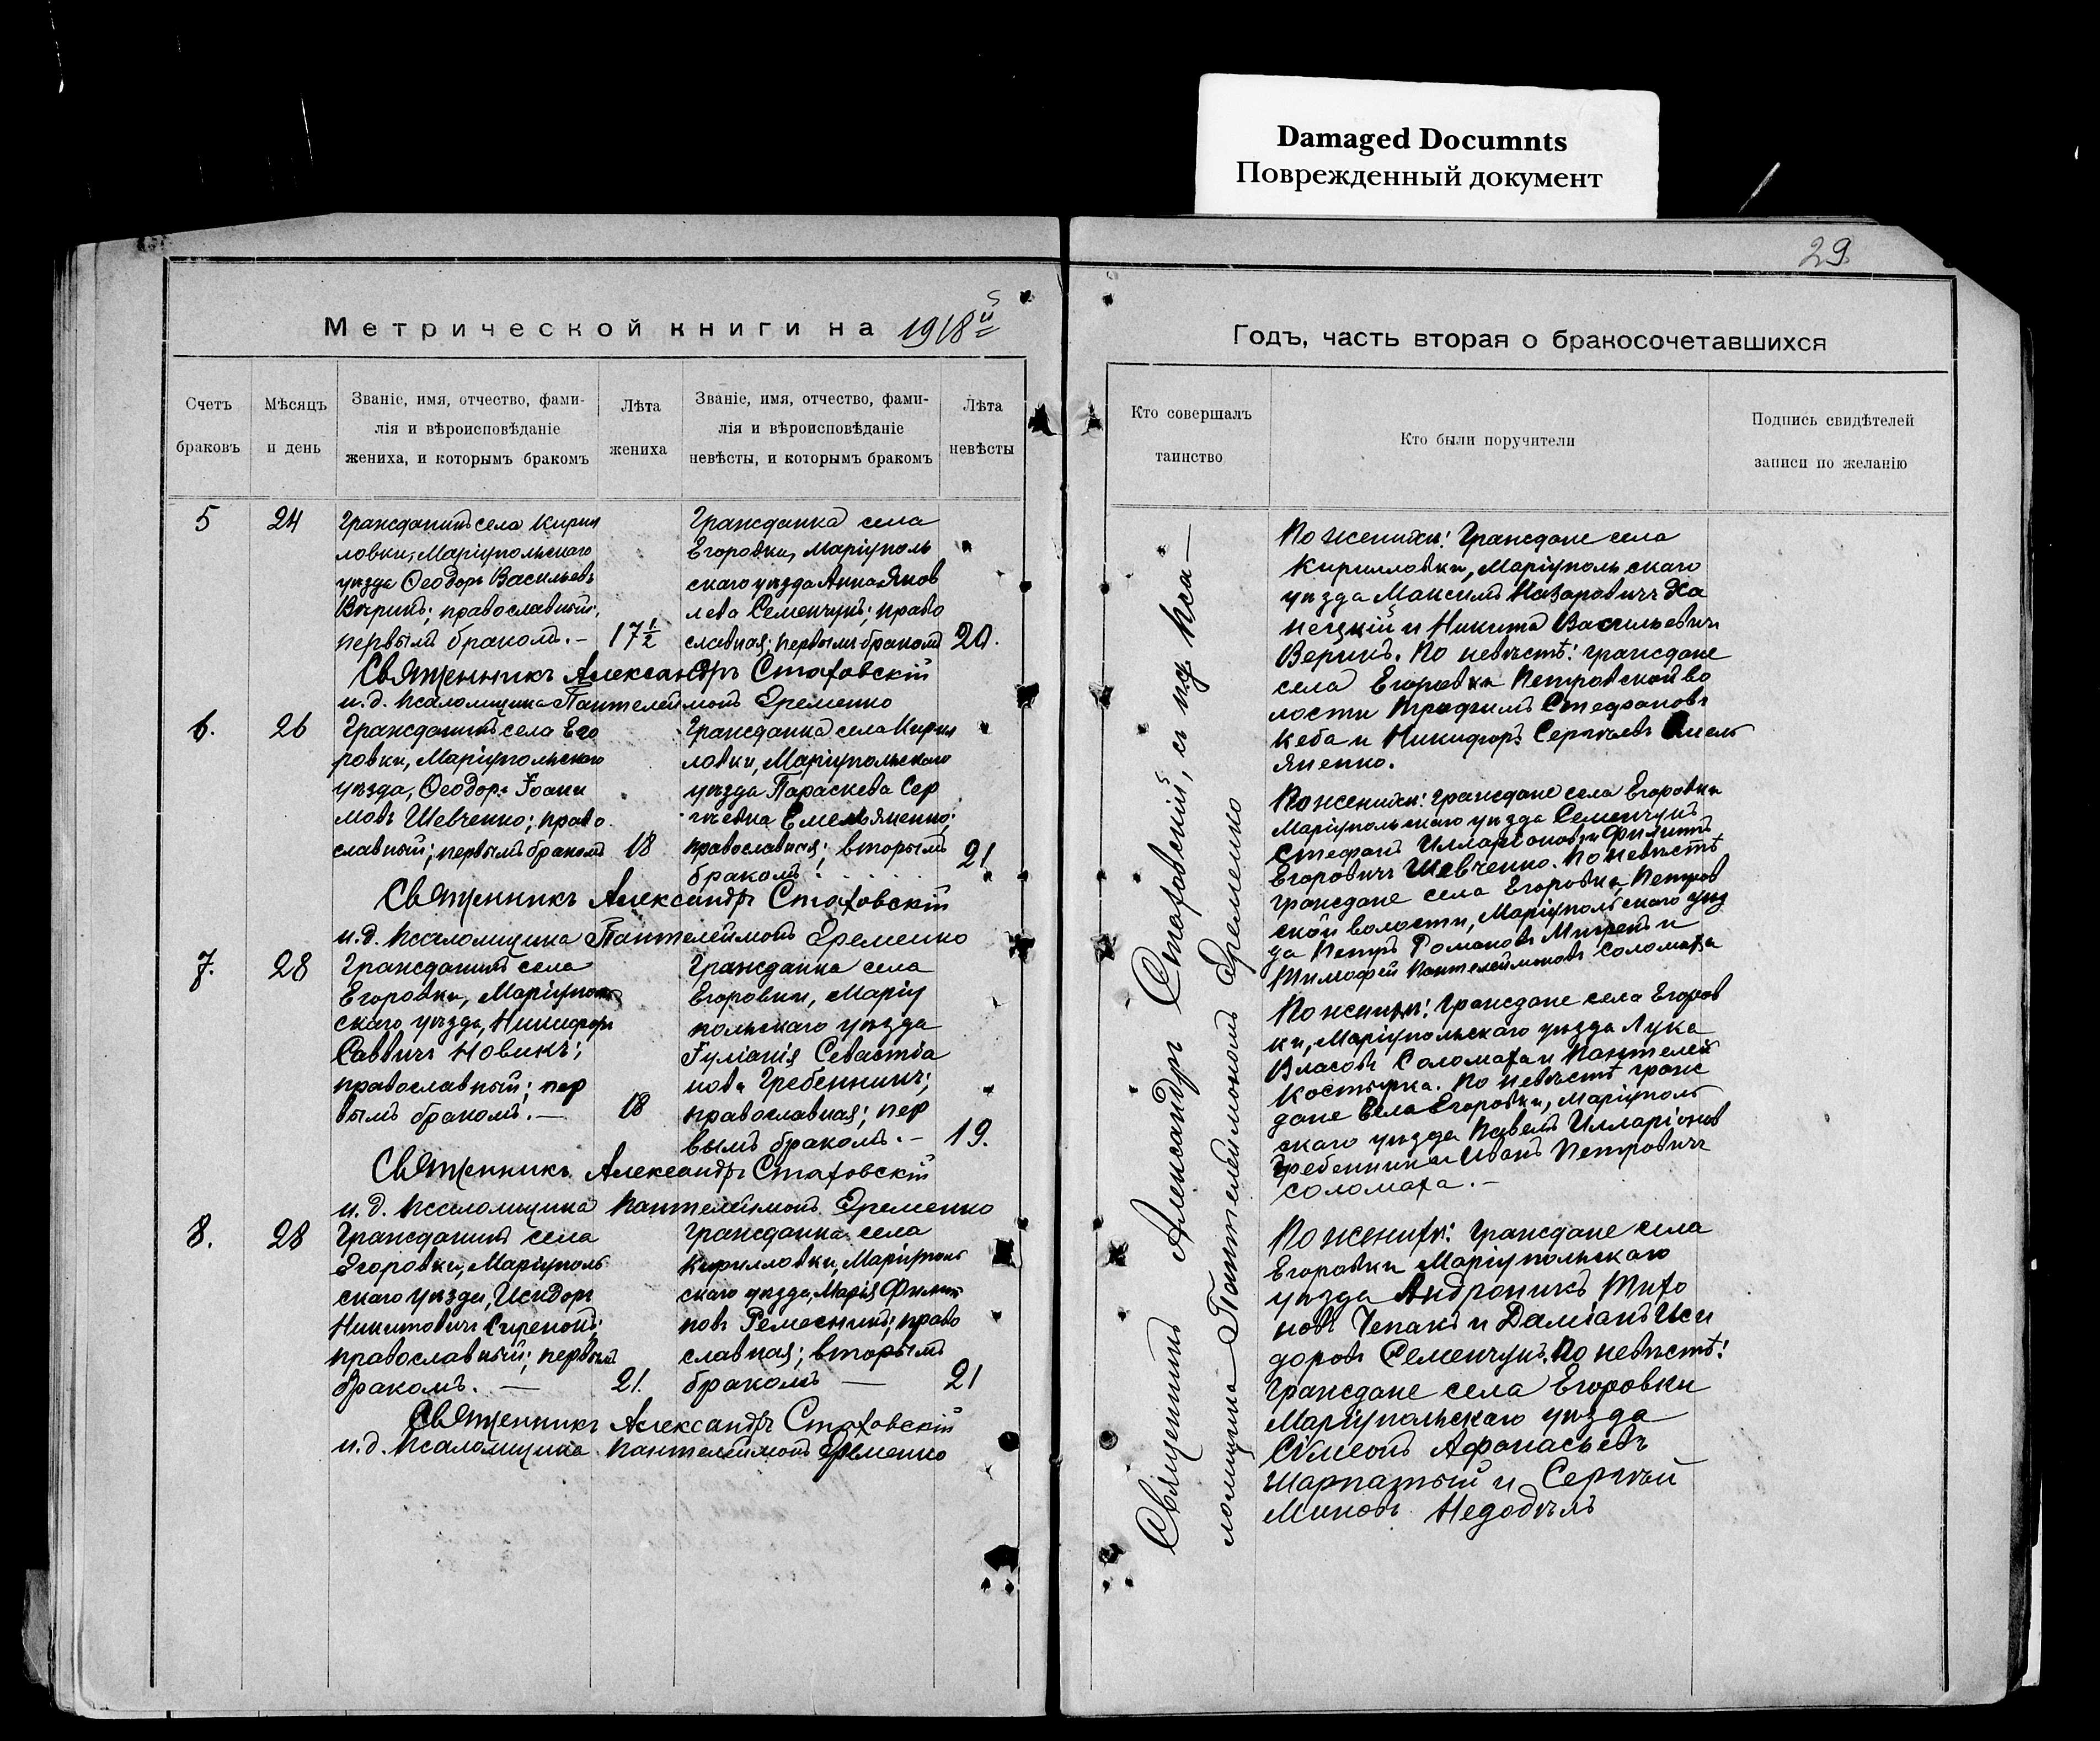 Damaged Documnts
Поврежденный документ
29
Метрической книги на 1918й
Счетъ
браковъ
Мѣсяцъ
и день
Званіе, имя, отчество, фами-
лія и вѣроисповѣданіе
жениха, и которымъ бракомъ
Лѣта
жениха
Званіе, имя, отчество, фами-
лія и вѣроисповѣданіе
невѣсты, и которымъ бракомъ
Лѣта
невѣсты
5
24
Гражданинъ села Кирил
ловки, Маріупольскаго
уѣзда Ѳеодоръ Васильевъ
Вѣринъ; православный;
первымъ бракомъ. —
17 1/2
Гражданка села
Егоровки, Маріуполь
скаго уѣзда Анна Яков
лева Семенчукъ; право
славная; первымъ бракомъ
20.
Священникъ Александръ Стаховскій
и. д. псаломщика Пантелеймонъ Еременко
6.
26
Гражданинъ села Его
ровки, Маріупольскаго
уѣзда, Ѳеодоръ Іоанн
овъ Шевченко; право
славный; первымъ бракомъ
18
Гражданка села Кирил
ловки, Маріупольскаго
уѣзда Параскева Сер
гѣевна Емельяненко;
православная; вторымъ
бракомъ.
21
Священникъ Александръ Стаховскій
и. д. псаломщика Пантелеймонъ Еременко
7.
28
Гражданинъ села
Егоровки, Маріуполь
скаго уѣзда, Никифоръ
Саввичъ Новикъ;
православный; пер
вымъ бракомъ. —
18
Гражданка села
Егоровки, Маріу
польскаго уѣзда
Іуліанія Севастіа
нова Гребенникъ;
православная; пер
вымъ бракомъ. —
19.
Священникъ Александръ Стаховскій
и. д. псаломщика Пантелеймонъ Еременко
8.
28
Гражданинъ села
Егоровки, Маріуполь
скаго уѣзда, Исидоръ
Никитовичъ
православный; первымъ
бракомъ. —
21.
Гражданка села
Кирилловки, Маріуполь
скаго уѣзда, Марія Филип
повъ Ремесникъ; право
славная; вторымъ
бракомъ —
21
Священникъ Александръ Стаховскій
и. д. псаломщика Пантелеймонъ Еременко
Годъ, часть вторая о бракосочетавшихся
Кто совершалъ
таинство
Кто были поручители
Подпись свидѣтелей
записи по желанію
Священникъ Александръ Стаховскій, съ и. д. пса—
ломщика Пантелеймономъ Еременко
По женихѣ: Граждане села
Кирилловки, Маріупольскаго
уѣзда Максимъ Назаровичъ Ха
нецкій и Никита Васильевичъ
Веринъ. По невѣстѣ: граждане
села Егоровки Петровской во
лости Трофимъ Стефановъ
Кеба и Никифоръ Сергѣевъ Омель
яненко.
По женихѣ: граждане села Егоровки
Маріупольскаго уѣзда Семенчукъ
Стефанъ Илларіоновъ и Филиппъ
Егоровичъ Шевченко. По невѣстѣ
граждане села Егоровки, Петров
ской волости, Маріупольскаго уѣз
да Петръ Романовъ и
Тимофей Пантелеймоновъ Соломаха
По женихѣ: Граждане села Егоров
ки, Маріупольскаго уѣзда Лука
Власовъ Соломаха и Пантелей
Костырка. По невѣстѣ граж
дане села Егоровки, Маріуполь
скаго уѣзда Павелъ Илларіоновъ
Гребенникъ и Иванъ Петровичъ
Соломаха. —
По женихѣ: Граждане села
Егоровки Маріупольскаго
уѣзда Андроникъ Тихо
новъ Чепакъ и Даміанъ Иси
доровъ Семенчукъ. По невѣстѣ:
Граждане села Егоровки
Маріупольскаго уѣзда
Сімеонъ Афанасьевъ
Шарпатый и Сергѣй
Миновъ Недодѣлъ